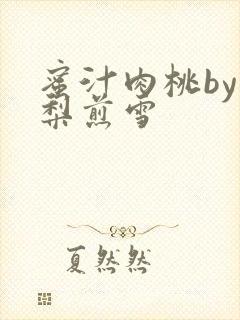 蜜汁肉桃by
梨煎雪
夏然然